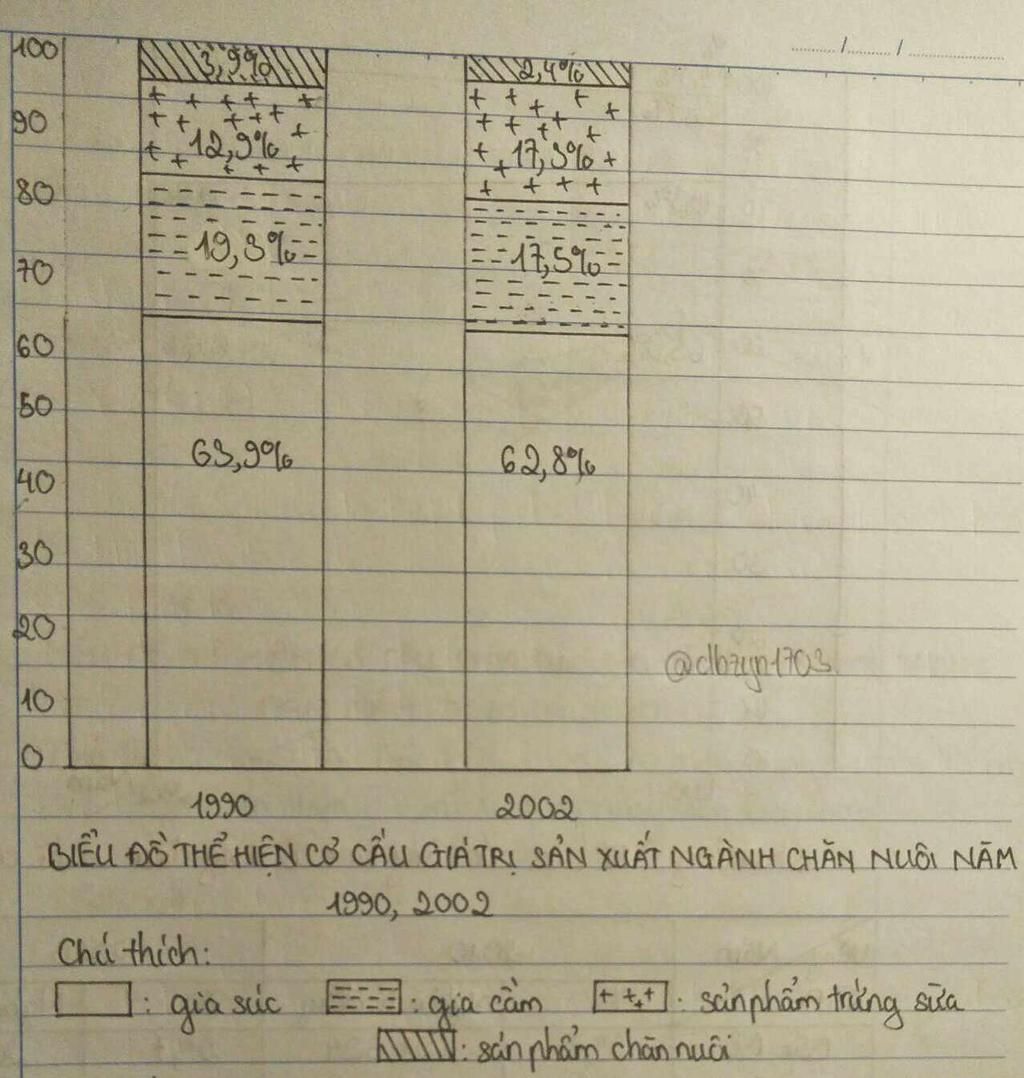 100
90
80
70
60
50
40
30
20
10
0
3,9%
12,9%
19,3%
63,9%
2,4%
17,3%
17,5%
62,8%
1990 2002
BIỂU ĐỒ THỂ HIỆN CƠ CẤU GIÁ TRỊ SẢN XUẤT NGÀNH CHĂN NUÔI NĂM
1990, 2002
Chú thích:
: gia súc : gia cầm : sản phẩm trứng sữa
: sản phẩm chăn nuôi